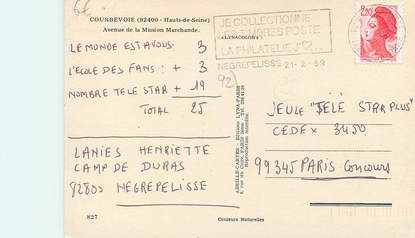 COURBEVOIE (92400 - Hauts-de-Seine)
Avenue de la Mission Marchande.
LE MONDE EST A VOUS : 3
L'ECOLE DES FANS : + 3
NOMBRE TELE STAR → + 19
TOTAL 25
LANIES HENRIETTE
CAMP DE DURAS
82800 NEGREPELISSE
827
Couleurs Naturelles
JE COLLECTIONNE
LES TIMBRES POSTE
LA PHILATELIE J'
NEGREPELISSE 21-2-89
2,20
JEU LE "TELE STAR PLUS"
CEDEX 3450
99345 PARIS Concours